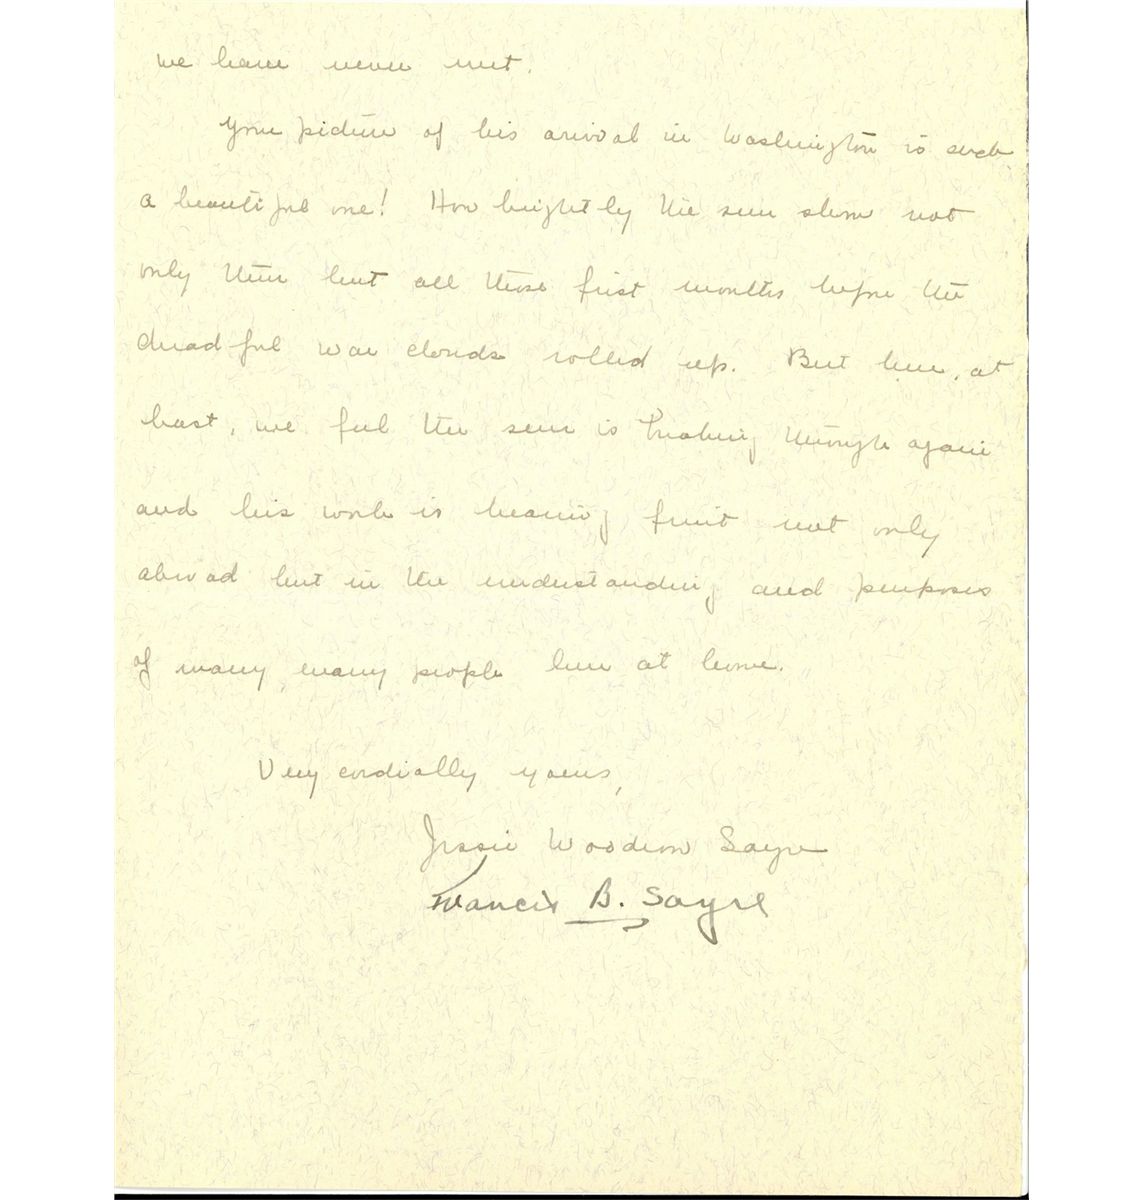 we have never met.
Your picture of his arrival in Washington is such
a beautiful one! How brightly the sun shone not
only then but all those first months before the
dreadful war clouds rolled up. But here, at
last, we feel the sun is breaking through again
and his work is bearing fruit not only
abroad but in the understanding and purposes
of many, many people here at home.
Very cordially yours,
Jessie Woodrow Sayre
Francis B. Sayre